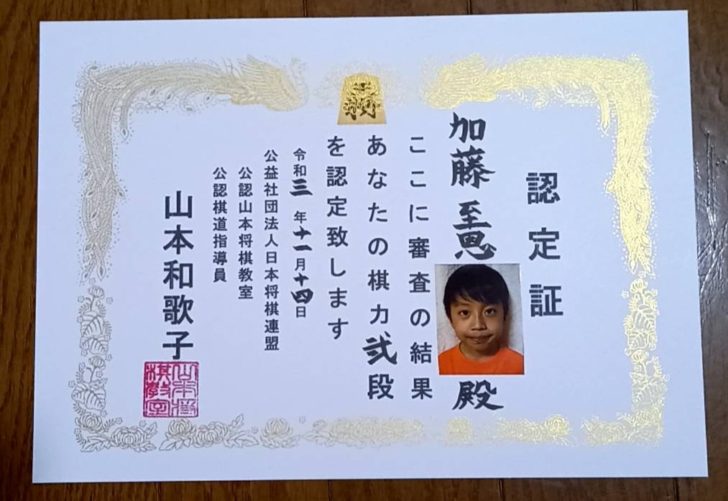 認定証
加藤至恩
殿
ここに審査の結果
あなたの棋力弐段
を認定致します
令和三年十一月十四日
公益社団法人日本将棋連盟
公認山本将棋教室
公認棋道指導員
山本和歌子